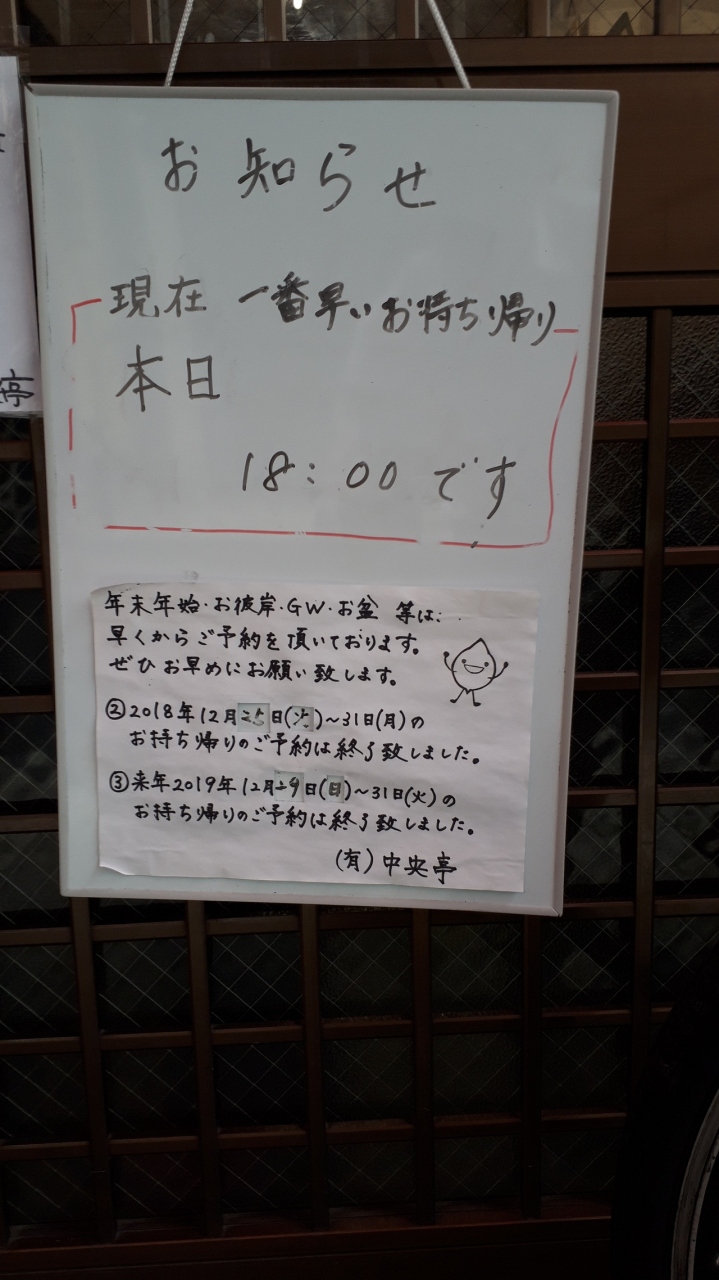 お知らせ
現在 一番早いお持ち帰り
本日
18:00です
年末年始・お彼岸・GW・お盆 等は、
早くからご予約を頂いております。
ぜひお早めにお願い致します。
②2018年12月25日(火)~31日(月)の
お持ち帰りのご予約は終了致しました。
③来年2019年12月29日(日)~31日(火)の
お持ち帰りのご予約は終了致しました。
(有)中央亭
亭